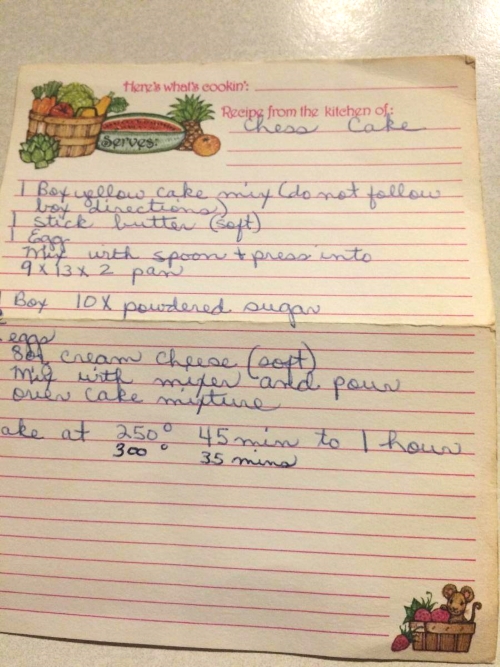 Here's what's cookin':
Recipe from the kitchen of:
Chess Cake
Serves:
1 Box yellow cake mix (do not follow
box directions)
1 stick butter (soft)
1 Egg
Mix with spoon + press into
9 x 13 x 2 pan
1 Box 10X powdered sugar
eggs
8oz cream cheese (soft)
Mix with mixer and pour
over cake mixture
ake at 250° 45 min to 1 hour
300° 35 mins